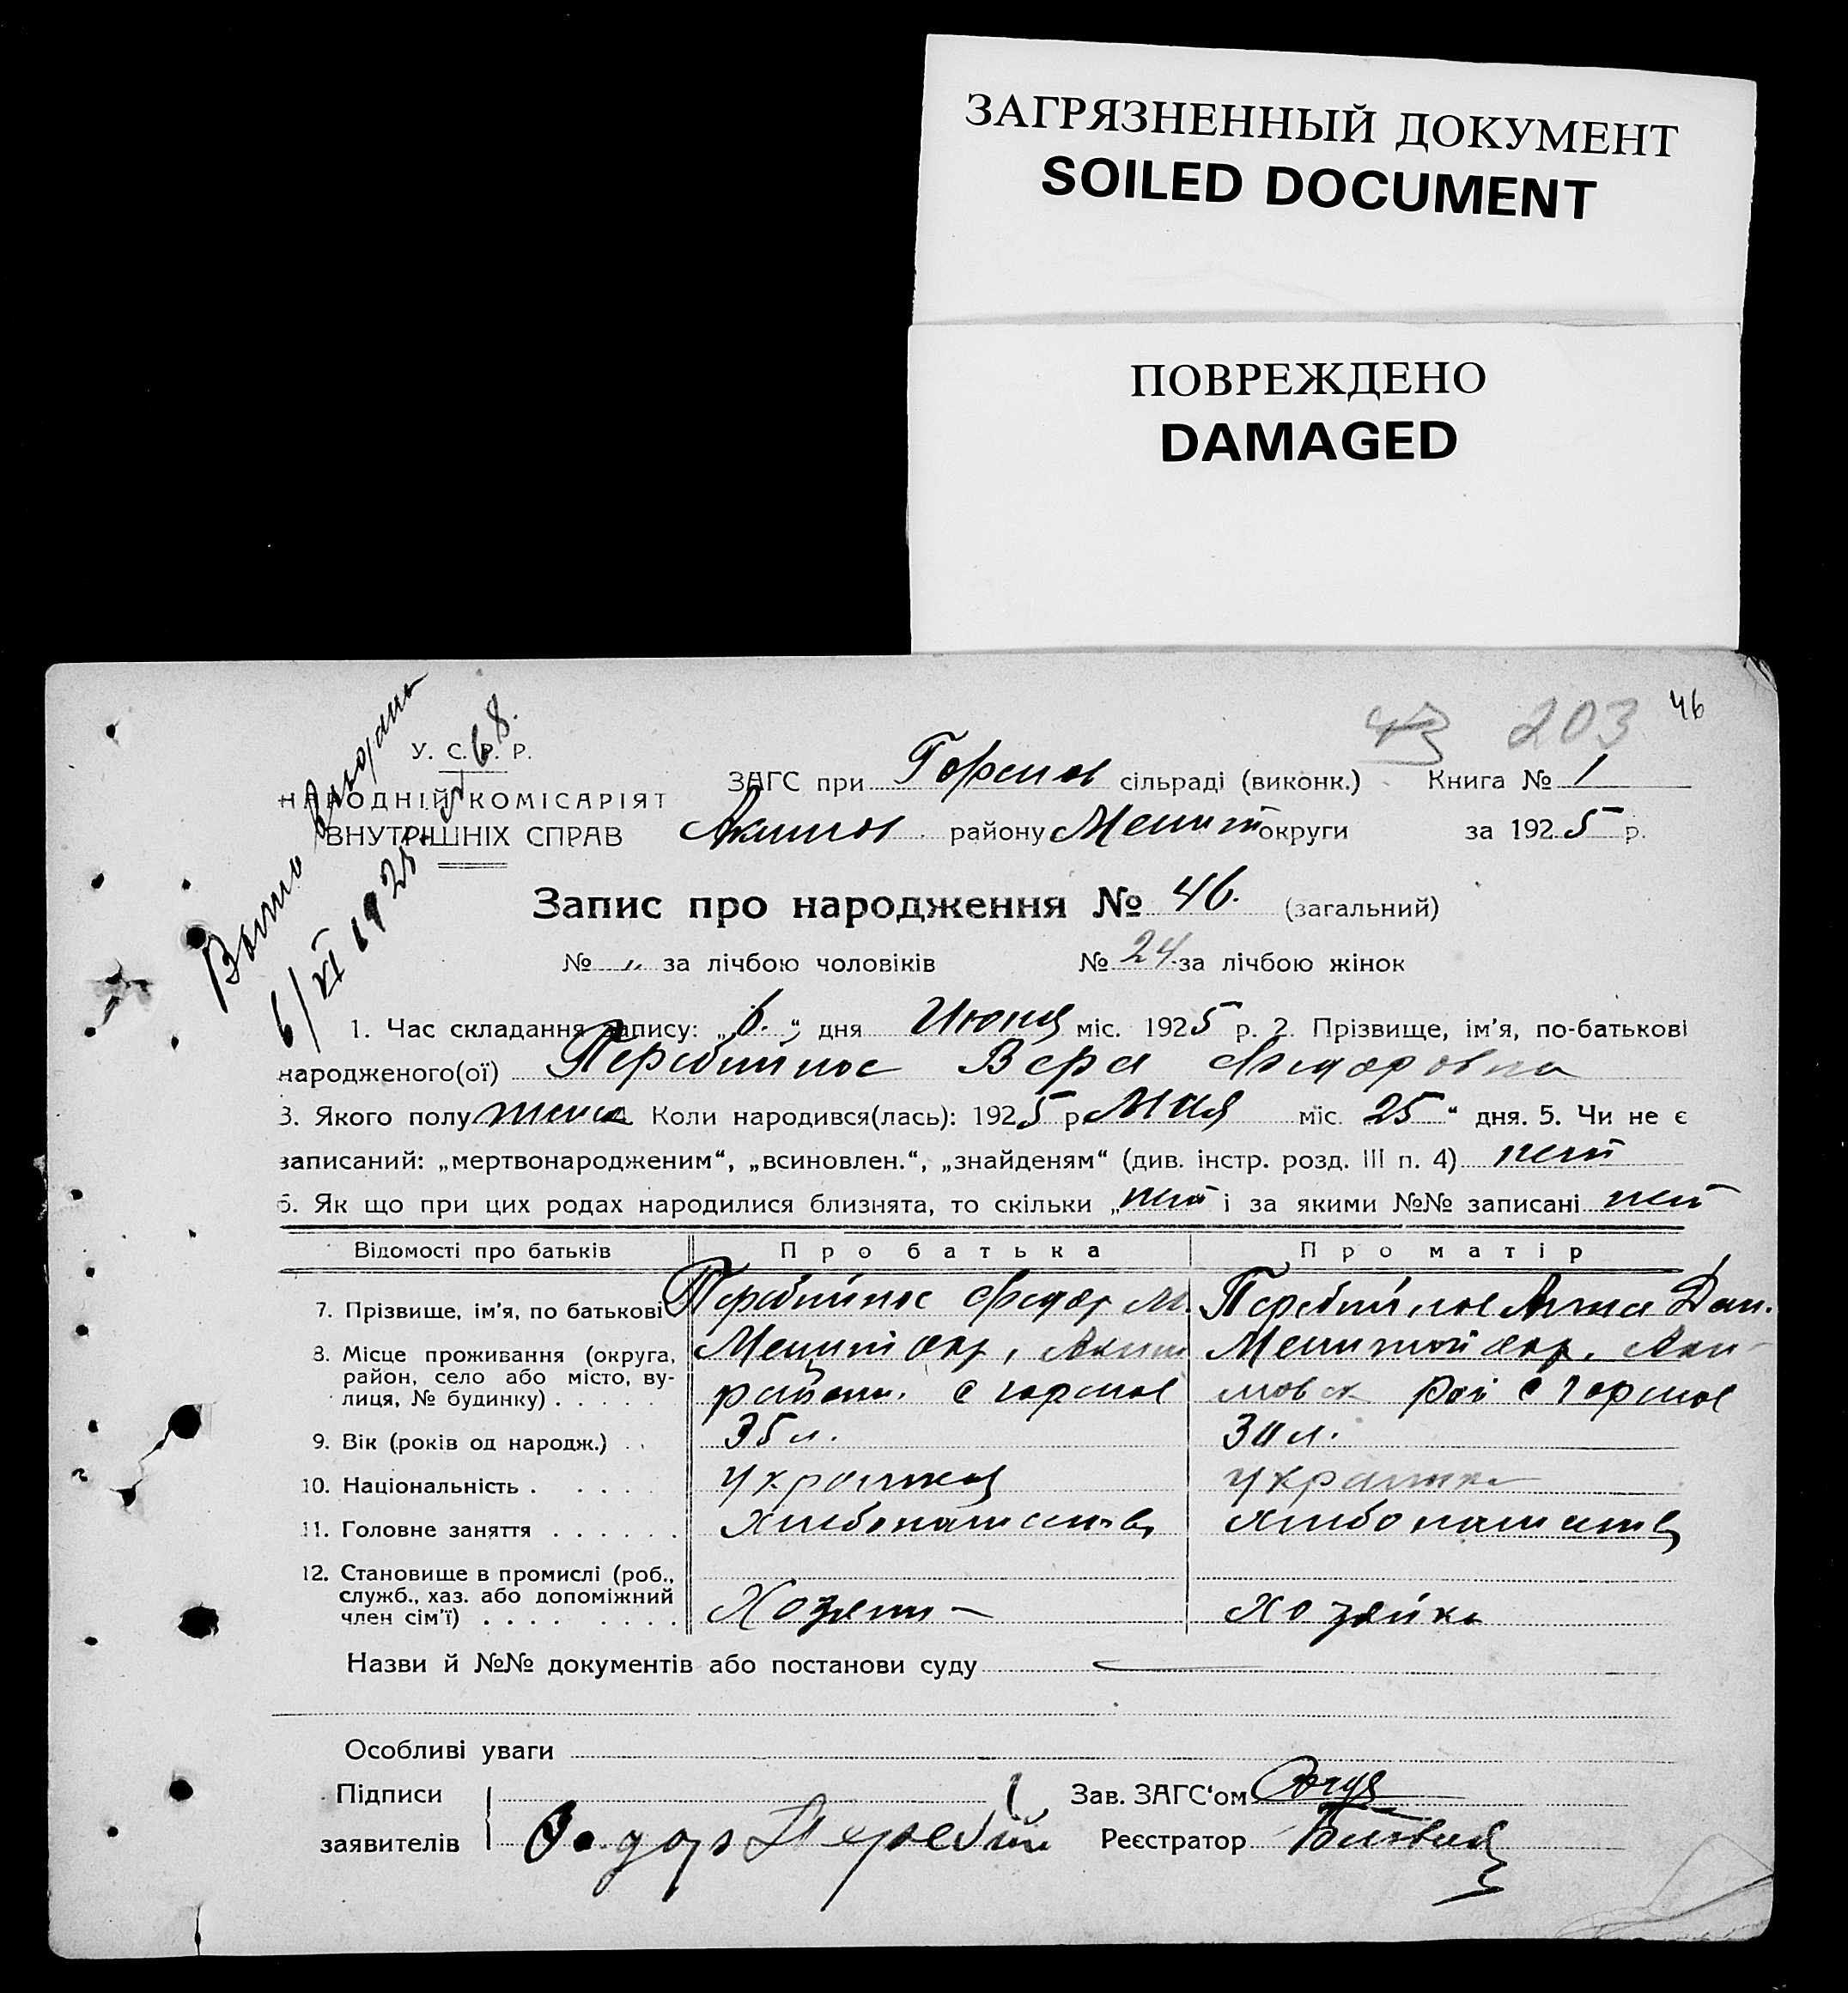 ЗАГРЯЗНЕННЫЙ ДОКУМЕНТ
SOILED DOCUMENT
ПОВРЕЖДЕНО
DAMAGED
43 203 46
У. С. Р. Р.
НАРОДНІЙ КОМІСАРІЯТ
ВНУТРІШНІХ СПРАВ
6/VI 1925
68.
ЗАГС при Горемов сільраді (виконк.) Книга № 1
Акимов району Мелит округи за 1925 р.
Запис про народження № 46. (загальний)
№ „ за лічбою чоловіків № 24. за лічбою жінок
1. Час складання запису: „6.“ дня Июня міс. 1925 р. 2. Прізвище, ім’я, по-батькові
народженого(ої)Перебийнос Вера Федоровна
3. Якого полу жен 4. Коли народився(лась): 1925 р Мая міс. 25“ дня. 5. Чи не є
записаний: „мертвонародженим“, „всиновлен.“, „знайденям“ (див. інстр. розд. III п. 4) нет
6. Як що при цих родах народилися близнята, то скільки „нет і за якими №№ записані нет
Відомості про батьків Про батька Про матір
7. Прізвище, ім’я, по батькові Перебийнос Федор М. Перебийнос Анна Дан.
8. Місце проживання (округа, Мелит окр, Аким Мелитой окр. Аки-
район, село або місто, ву- районн. с горемов мовск рай с горемов
лиця, № будинку) . . . . .
9. Вік (років од народж.) . . 35 л. 30 л.
10. Національність . . . . . украинец украинка
11. Головне заняття . . . . . . Хлебопашество хлебопашество
12. Становище в промислі (роб.,
служб., хаз. або допоміжний
член сім’ї) . . . . . . . . Хозяин – хозяйка
Назви й №№ документів або постанови суду
Особливі уваги
Підписи Зав. ЗАГС‘ом
заявителів Федор Перебий Реєстратор